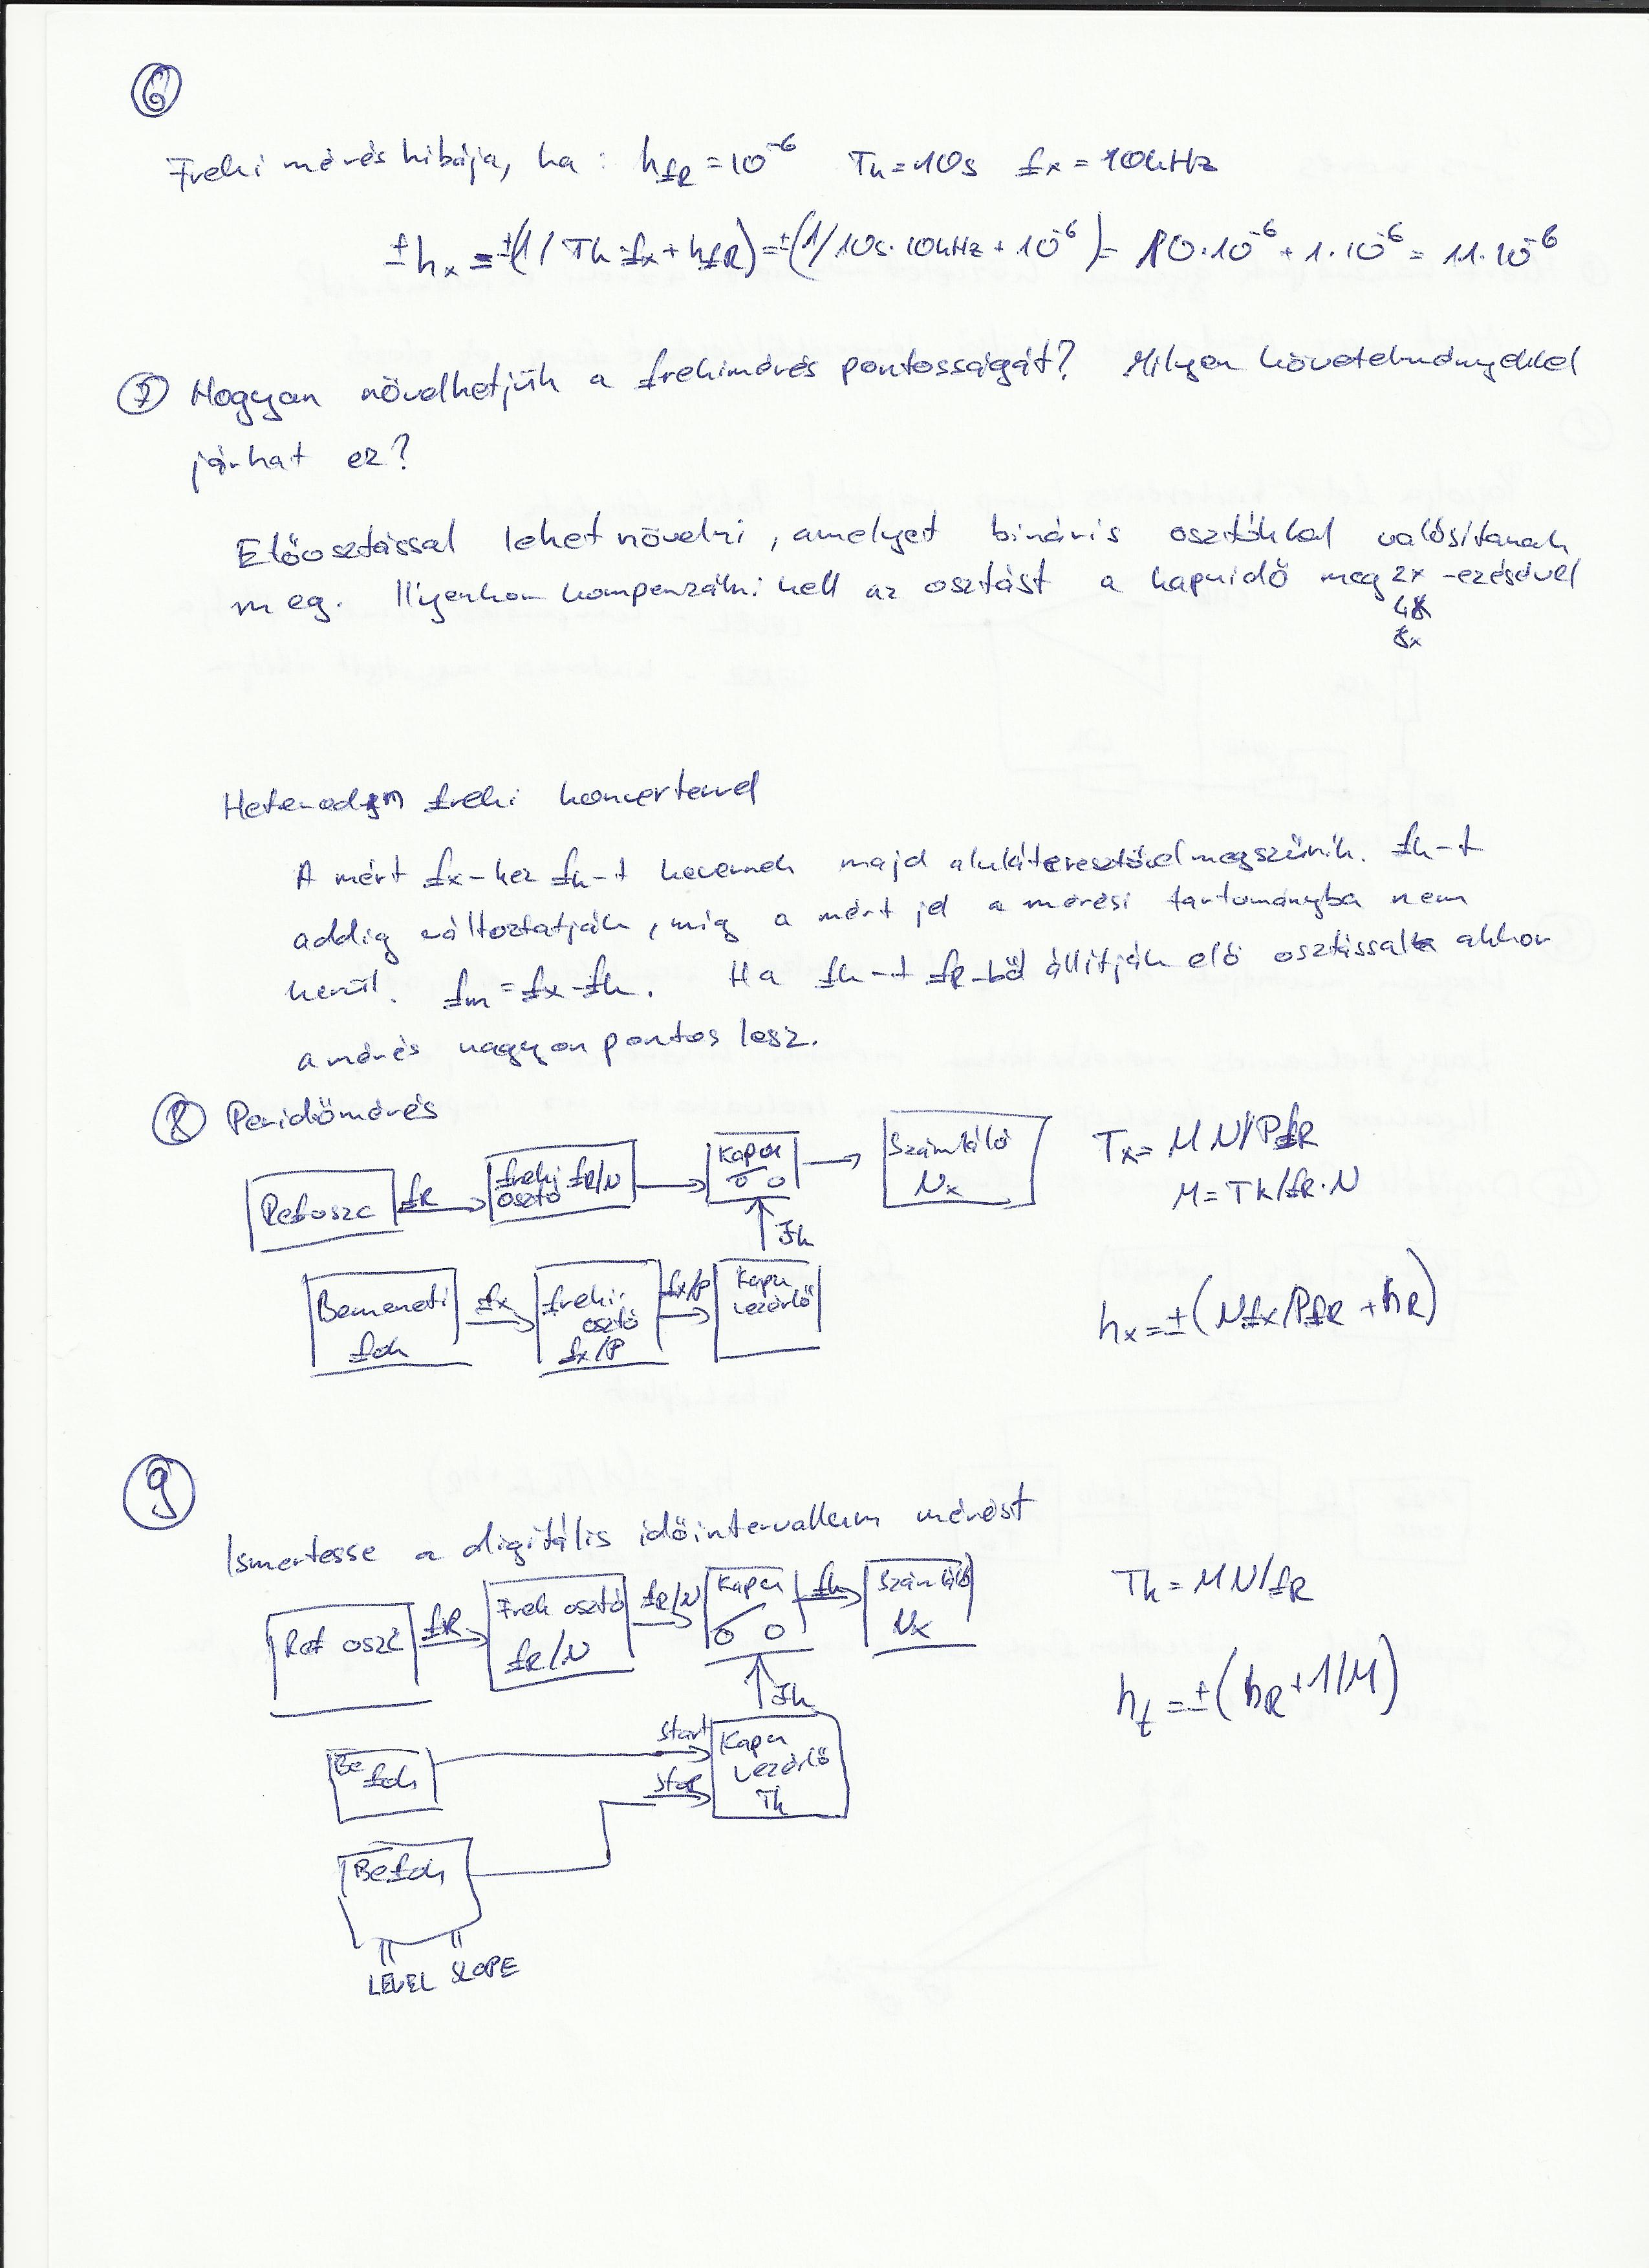 6
Freki mérés hibája, ha : hfR = 10^-6 Tk = 10s fx = 10kHz
±hx = ±(1/Tk·fx + hfR) = ±(1/10s·10kHz + 10^-6) = 10·10^-6 + 1·10^-6 = 11·10^-6
7 Hogyan növelhetjük a frekimérés pontosságát? Milyen következményekkel
járhat ez?
Előosztással lehet növelni, amelyet bináris osztókkal valósítanak
meg. Ilyenkor kompenzálni kell az osztást a kapuidő meg 2x -ezésével
4x
8x
Heterodyn freki konverterrel
A mért fx-hez fk-t kevernek majd aluláteresztővel megszűrik. fk-t
addig változtatják, míg a mért jel a mérési tartományba nem
kerül. fm = fx-fk. Ha fk-t fR-ből állítják elő osztással akkor
a mérés nagyon pontos lesz.
8 Peridőmérés
Refoszc fR freki osztó fR/N Kapu Számláló Nx
Tx = M N/PfR
M = Tk/fR·N
Tk
Bemeneti fok fx freki. osztó fx/P fx/P Kapu vezérlő
hx = ±(Nfx/PfR + hR)
9
Ismertesse a digitális időintervallum mérést
Ref oszc fR Frek osztó fR/N fR/N Kapu fk Számláló Nx
Tk = M N/fR
Tk
ht = ±(hR + 1/M)
Be fok start Kapu vezérlő Tk
stop
Be fok
LEVEL SLOPE